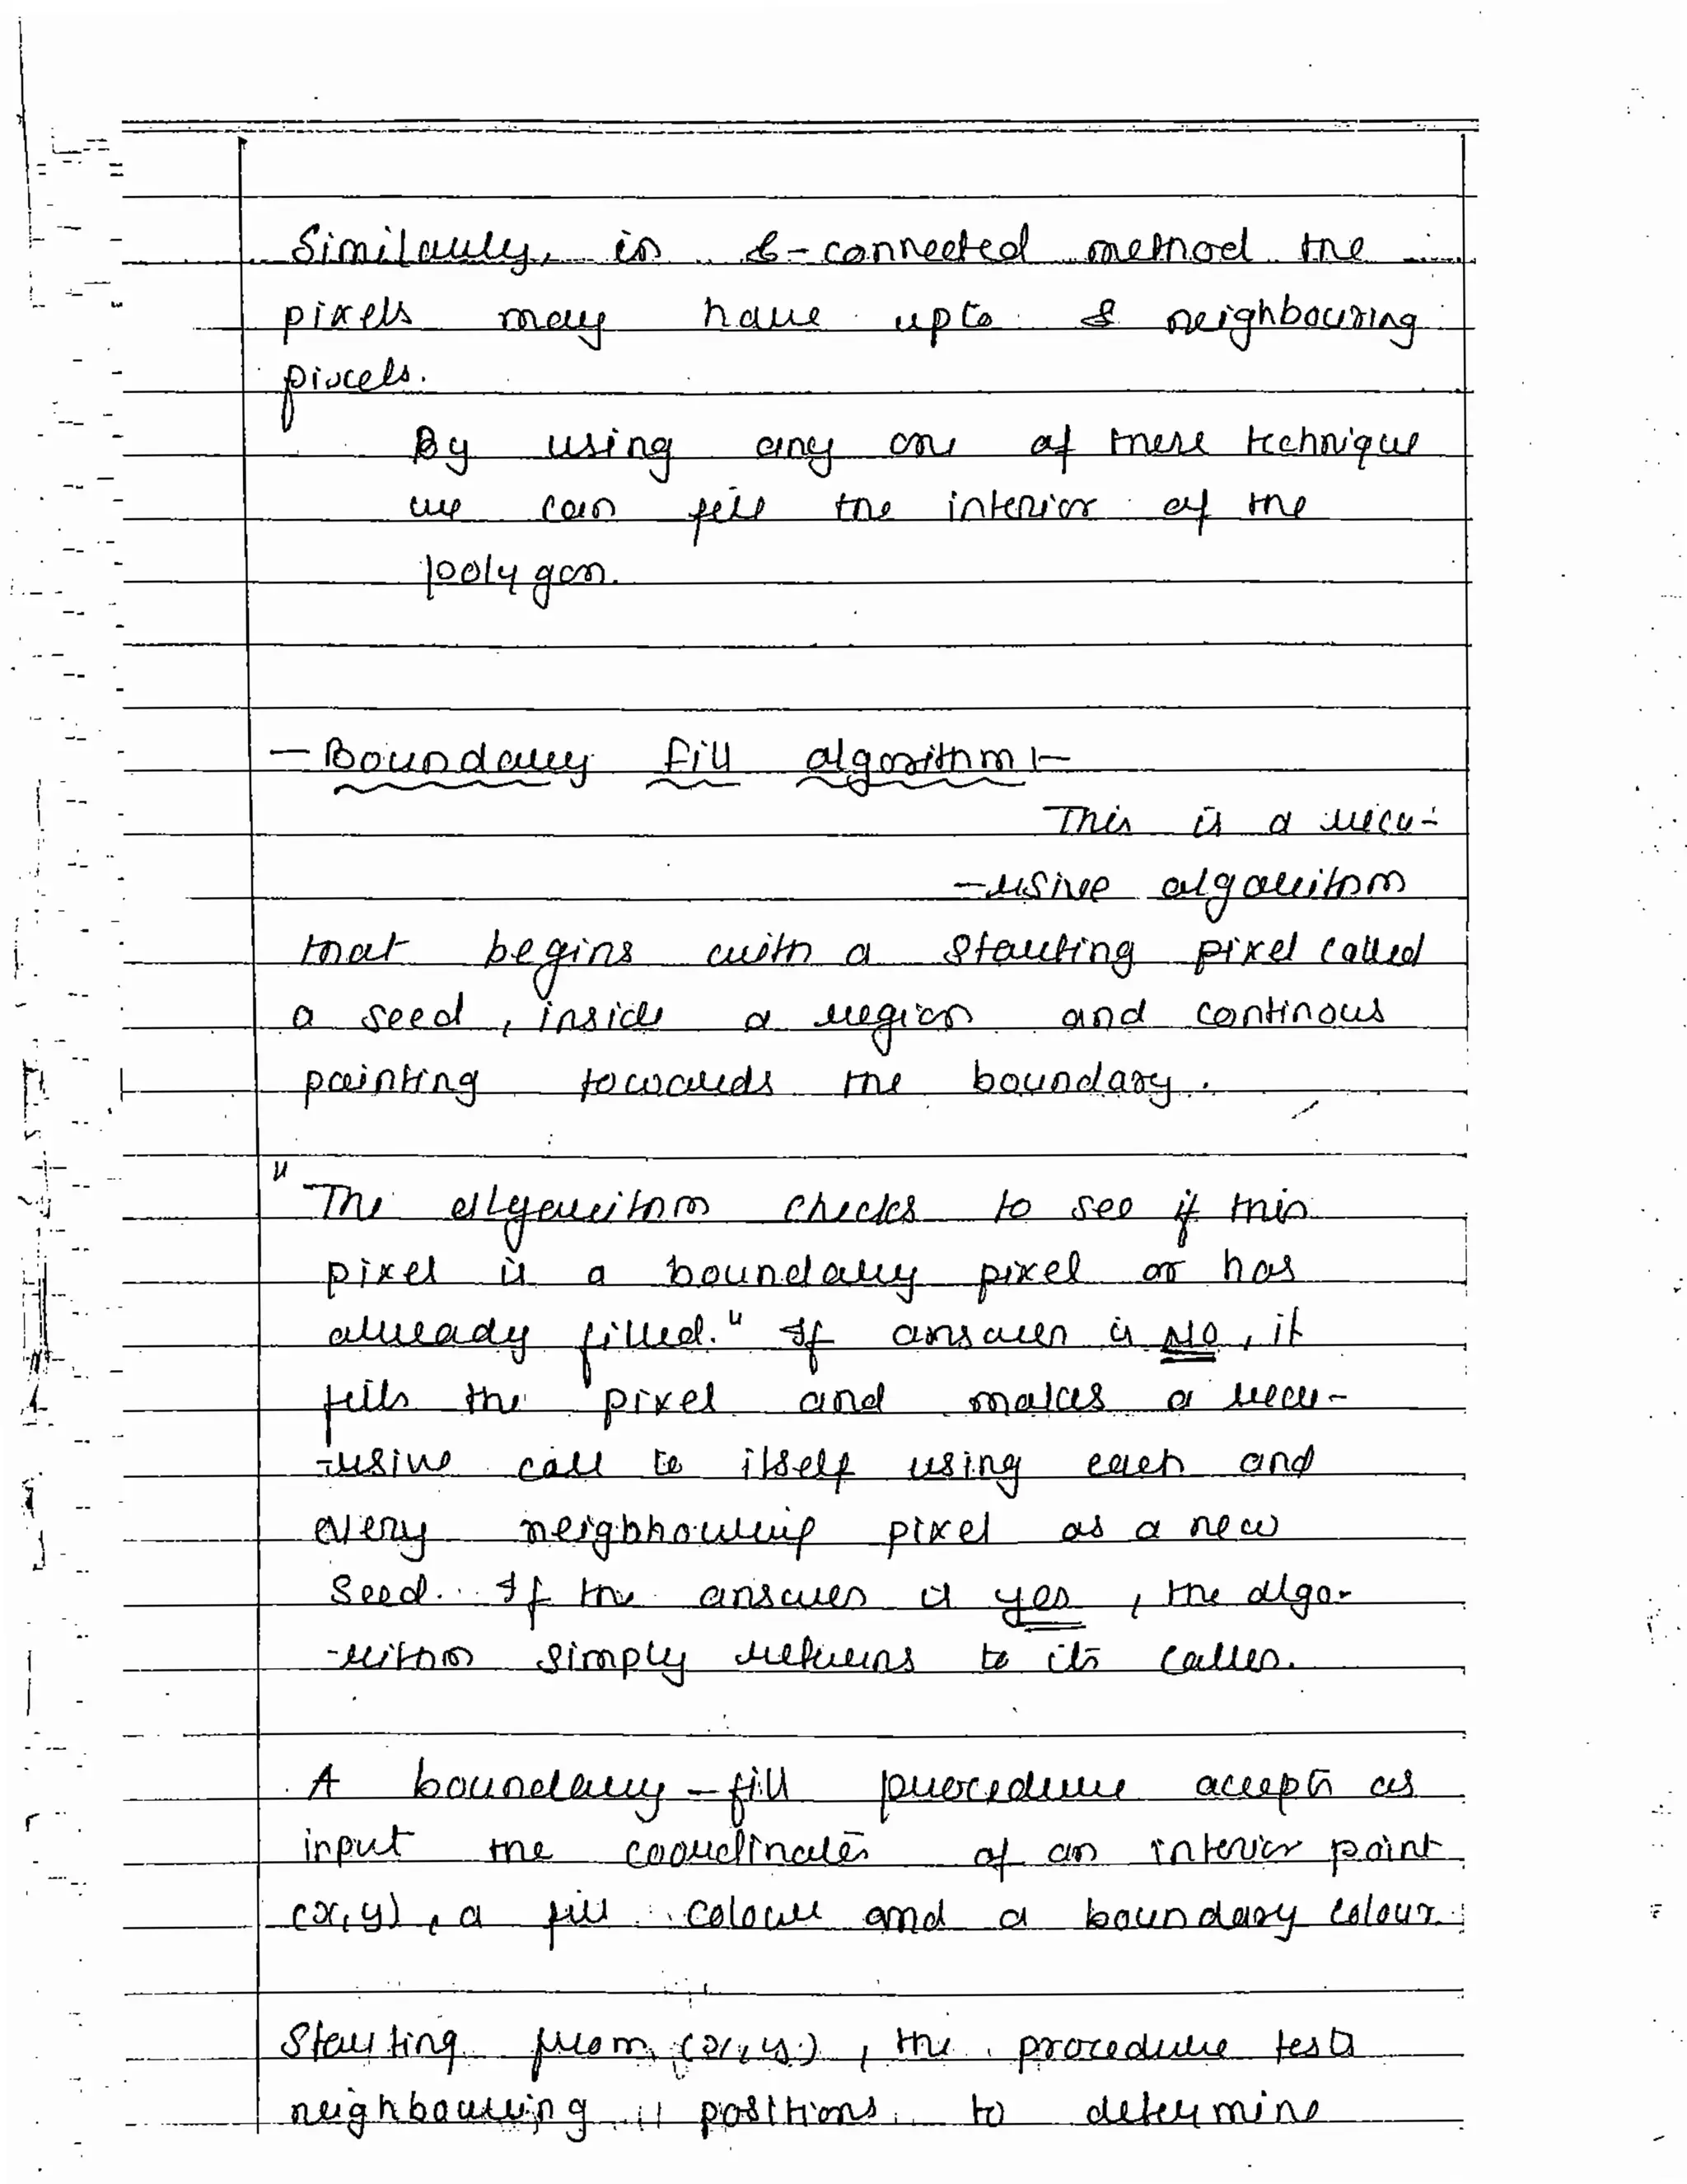 Similarly, in 8-connected method the
pixels may have upto 8 neighbouring
pixels.
By using any one of these technique
we can fill the interior of the
polygon.
- Boundary fill algorithm :-
This is a recu-
-rsive algorithm
that begins with a starting pixel called
a seed, inside a region and continous
painting towards the boundary.
"The algorithm checks to see if this
pixel is a boundary pixel or has
already filled." If answer is NO, it
fills the pixel and makes a recu-
-rsive call to itself using each and
every neighbouring pixel as a new
seed. If the answer is yes, the algo-
-rithm simply returns to its caller.
A boundary-fill procedure accepts as
input the coordinates of an interior point
(x,y), a fill colour and a boundary colour.
Starting from (x,y), the procedure tests
neighbouring positions to determine